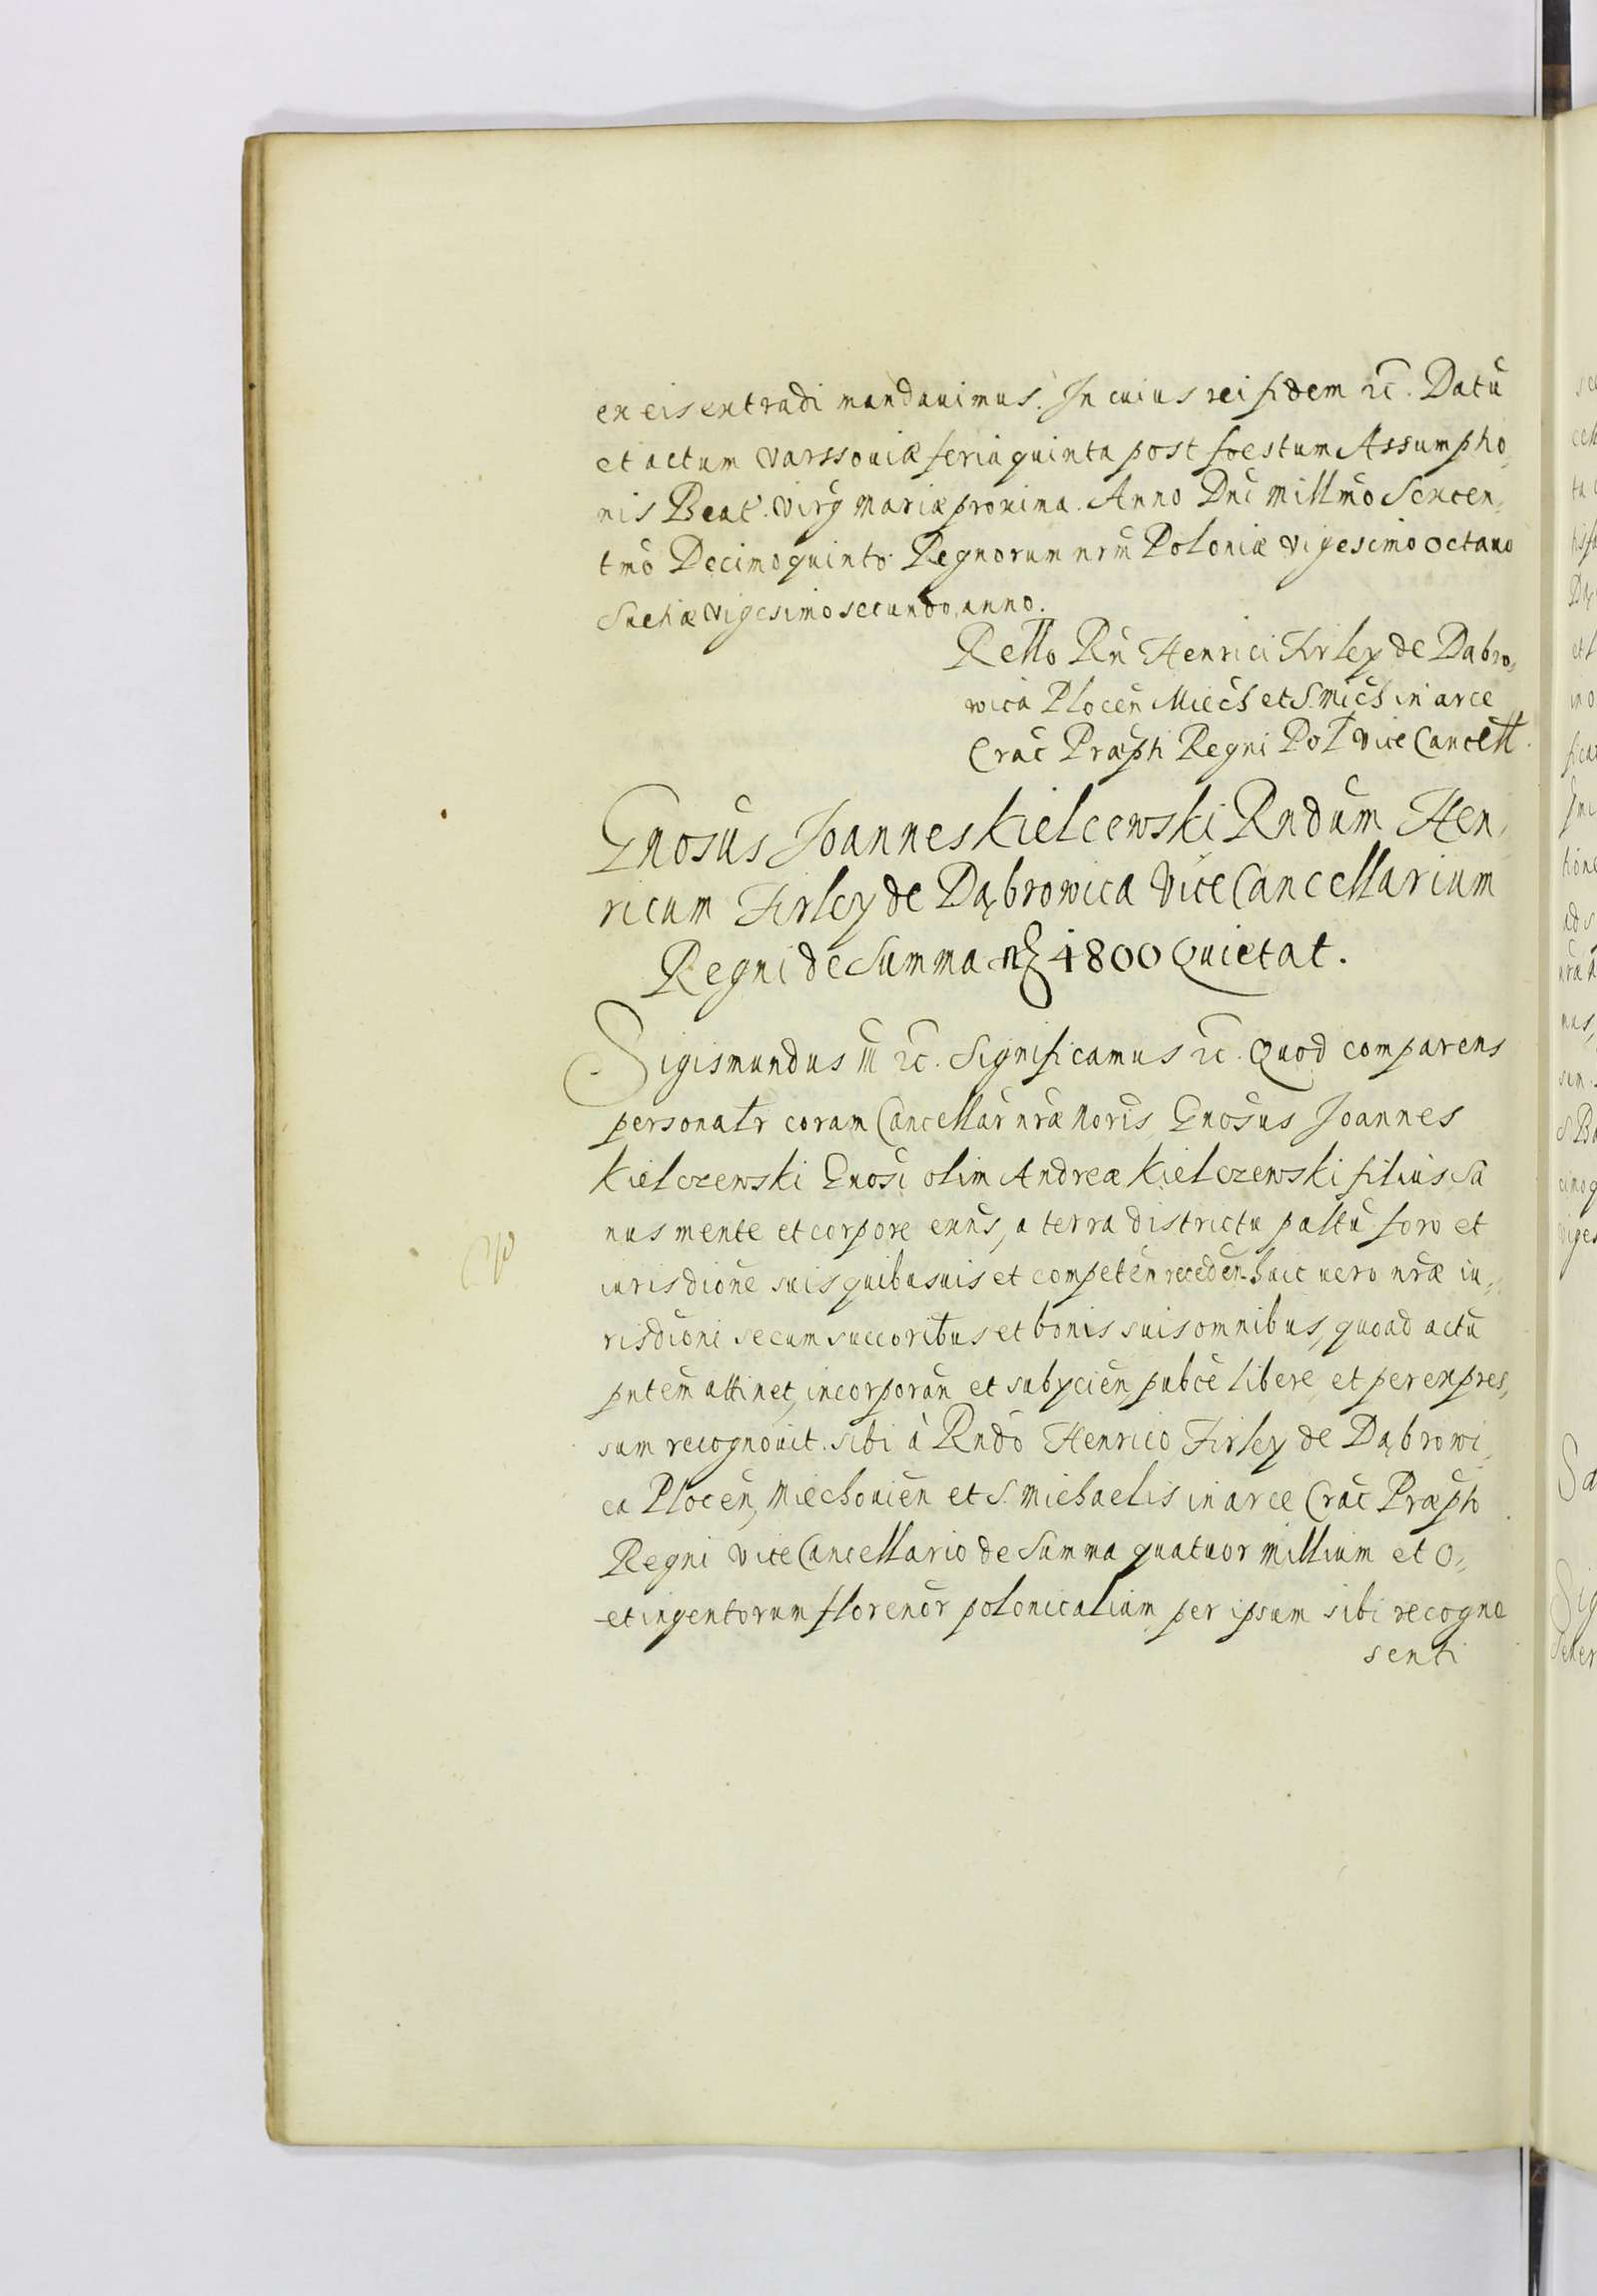 ex eis extradi mandauimus. In cuius rei fidem ec̃. Datũ
et actum Varssouiæ feria quinta post foestum Assumptio,
nis Beat̃. Virg̃ Mariæ proxima. Anno Dnĩ Millm̃o Sexcen,
tm̃o Decimoquinto. Regnorum nrm̃ Poloniæ Vigesimo octauo
Suetiæ Vigesimo secundo, anno.
Rello Rñ Henrici Firley de Dabro,
wica Plocen̄ Miecħ et S. Micħ in arce
Crac̃ Præpti Regni Pol Vice Cancell.
Gnosus Joannes Kielcewski Rndum Hen,
ricum Firley de Dąbrowica Vice Cancellarium
Regni de Summa 4800 Quietat.
Sigismundus III ec̃. Significamus ec̃. Quod comparens
personalr coram Cancellar̃ nr̃æ Noris, Gnosus Joannes
Kielczewski Gnosi olim Andreæ Kielczewski filius Sa
nus mente et corpore exñs, a terra districtu paltũ foro et
iurisdione suis quibusuis et competen̄ receden̄ huic uero nr̃æ iu,
risdioni se cum succoribus et bonis suis omnibus, quoad actũ
pntem attinet, incorporan̄ et subycien̄, pubce libere et per expres,
sum recognouit. sibi à Rndo Henrico Firley de Dąbrowi,
ca Plocen̄, Miechouien̄ et S. Michaelis in arce Crac̃ Præpto
Regni Vice Cancellario de Summa quatuor Millium et O,
ctingentorum florenor̃ polonicalium per ipsum sibi recogno
scenti